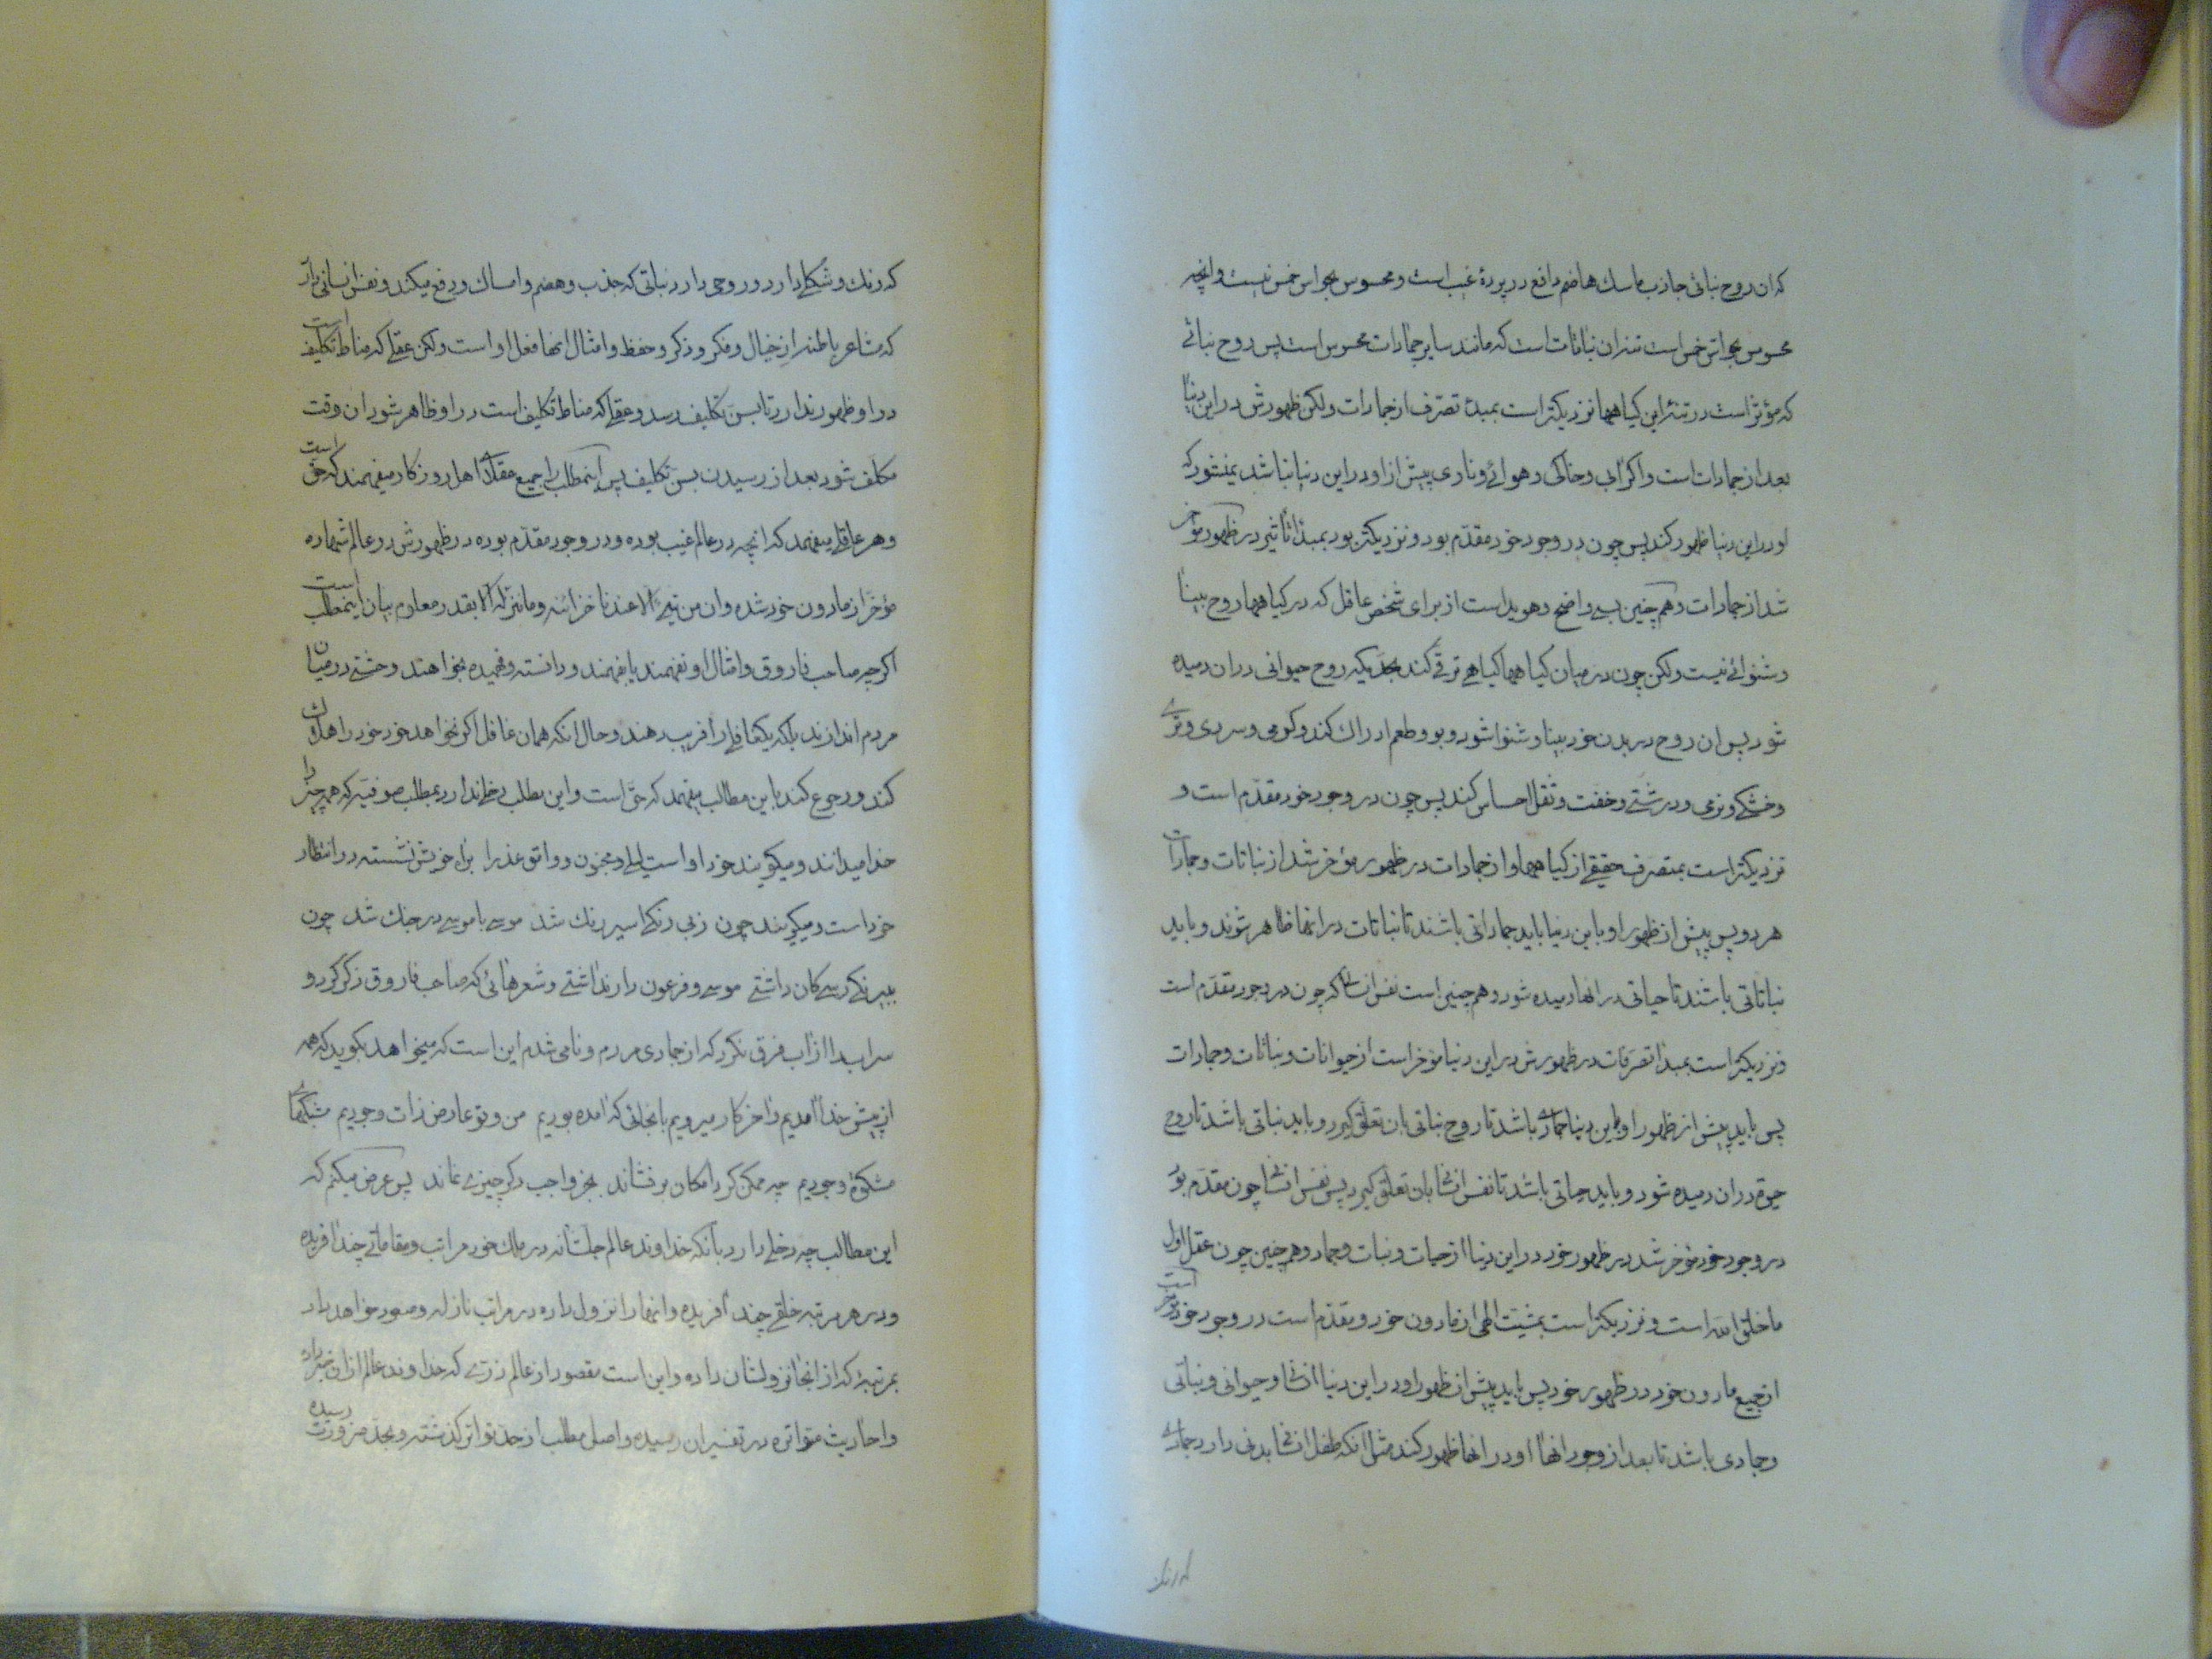 که ان روح نباتی جاذب ماسک هاضم دافع در پردهٔ غیب است و محسوس بحواس خمس نیست و انچه
محسوس بحواس خمس است تن ان نباتات است که مانند سایر جمادات محسوس است پس روح نباتی
که مؤثر است در تن این کیاهها نزدیکتر است بمبدء تصرف از جمادات ولکن ظهورش در این دنیا
بعد از جمادات است و اکر ابی و خاکی و هوائی و ناری پیش از او در این دنیا نباشد نمیشود که
او در این دنیا ظهور کند پس چون در وجود خود مقدم بود و نزدیکتر بود بمبدء تاثیر در ظهور مؤخر
شد از جمادات و هم چنین بسی واضح و هویدا است از برای شخص عاقل که در کیاهها روح بینا
و شنوائی نیست ولکن چون در میان کیاهها کیاهی ترقی کند بحدیکه روح حیوانی در ان دمیده
شود پس ان روح در بدن خود بینا و شنوا شود و بو و طعم ادراک کند و کرمی و سردی و تری
و خشکی و نرمی و درشتی و خفت و ثقل احساس کند پس چون در وجود خود مقدم است و
نزدیکتر است بمتصرف حقیقی از کیاهها و از جمادات در ظهور مؤخر شد از نباتات و جمادات
هر دو پس پیش از ظهور او باین دنیا باید جماداتی باشند تا نباتات در انها ظاهر شوند و باید
نباتاتی باشند تا حیاتی در انها دمیده شود و هم چنین است نفس انسانی که چون در وجود مقدم است
و نزدیکتر است بمبدء تصرفات در ظهورش در این دنیا مؤخر است از حیوانات و نباتات و جمادات
پس باید پیش از ظهور او باین دنیا جمادی باشد تا روح نباتی بان تعلق کیرد و باید نباتی باشد تا روح
حیوة در ان دمیده شود و باید حیاتی باشد تا نفس انسانی بان تعلق کیرد پس نفس انسانی چون مقدم بود
در وجود خود مؤخر شد در ظهور خود در این دنیا از حیات و نبات و جماد و هم چنین چون عقل اول
ما خلق الله است و نزدیکتر است بمشیت الهی از مادون خود و مقدم است در وجود خود مؤخر است
از جمیع مادون خود در ظهور خود پس باید پیش از ظهور او در این دنیا انسانی و حیوانی و نباتی
و جمادی باشد تا بعد از وجود انها او در انها ظهور کند مثل انکه طفل انسانی بدنی دارد جمادی
که رنک
که رنک و شکلی دارد و روحی دارد نباتی که جذب و هضم و امساک و دفع میکند و نفس انسانی دارد
که مشاعر باطنه از خیال و فکر و ذکر و حفظ و امثال انها فعل او است ولکن عقلی که مناط تکلیف است
در او ظهور ندارد تا بسن تکلیف رسد و عقلی که مناط تکلیف است در او ظاهر شود ان وقت
مکلف شود بعد از رسیدن بسن تکلیف پس اینمطلب را جمیع عقلای اهل روزکار میفهمند که حق است
و هر عاقلی میفهمد که انچه در عالم غیب بوده و در وجود مقدم بوده در ظهورش در عالم شهاده
مؤخر از مادون خود شده و ان من شیء الا عندنا خزائنه و ما ننزله الا بقدر معلوم بیان اینمطلب است
اکرچه صاحب فاروق و امثال او نفهمند یا بفهمند و دانسته و فهمیده بخواهند وحشتی در میان
مردم اندازند بلکه یکغافلی را فریب دهند و حال انکه همان غافل اکر نخواهد خود خود را هلاک
کند و رجوع کند باین مطالب میفهمد که حق است و این مطلب دخلی ندارد بمطلب صوفیه که همه چیز را
خدا میدانند و میکویند خود او است لیلی و مجنون و وامق عذرا براه خویش نشسته در انتظار
خود است و میکویند چون زبی رنکی اسیر رنک شد موسی با موسی در جنک شد چون
ببیرنکی رسی کان داشتی موسی و فرعون دارند اشتی و شعرهائی که صاحب فاروق ذکر کرد و
سراب را از اب فرق نکرد که از جمادی مردم و نامی شدم این است که میخواهد بکوید که همه
از پیش خدا امدیم و اخر کار میرویم بانجائی که امده بودیم من و تو عارض ذات وجودیم مشبکهای
مشکوة وجودیم چه ممکن کرد امکان برفشاند بجز واجب دکر چیزی نماند پس عرض میکنم که
این مطالب چه دخلی دارد بانکه خداوند عالم جلشانه در ملک خود مراتب و مقاماتی چند افریده
و در هر مرتبه خلقی چند افریده و انها را نزول داده در مراتب نازله و صعود خواهد داد
بمرتبهٔ که از انجا نزولشان داده و این است مقصود از عالم ذری که خداوند عالم از ان خبر داده
و احادیث متواتره در تفسیر ان رسیده و اصل مطلب از حد تواتر کذشته و بحد ضرورت رسیده